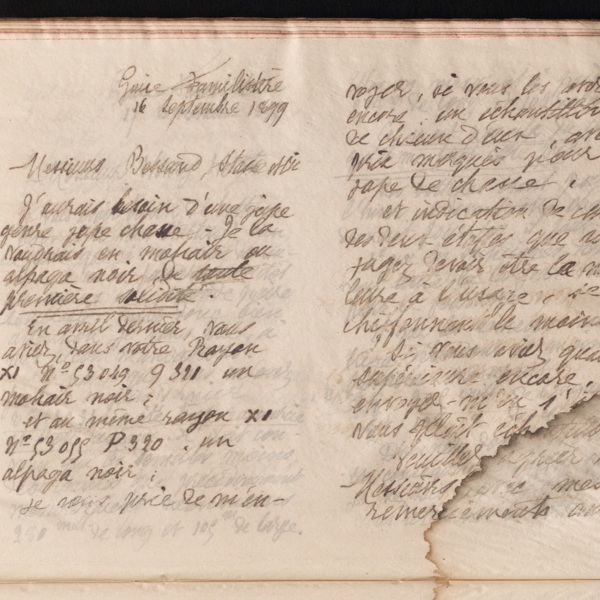 Guise Familistère
16 Septembre 1899
Messieurs Bessand, Stasse et Cie
J'aurais besoin d'une jupe
genre jupe chasse - Je la
voudrais en mohair ou
alpaga noir de toute
première solidité.
En avril dernier, vous
aviez, dans votre Rayon
XI Nº 53049 9321 un
mohair noir;
et au même rayon XI
Nº 53055 P320 . un
alpaga noir;
Je vous prie de m'en-
voyer, si vous les avez
encore, un échantillon
de chacun d'eux, avec
prix marqués pour
jupe de chasse;
et indication de
des deux étoffes que
jugez devoir être la
à l'usage,
chiffonnant le moins
Si vous aviez
supérieure encore,
envoyez-m'en
vous plaît
Veuillez agréer
Messieurs, avec mes
remerciements
280 de long et 105 de large.